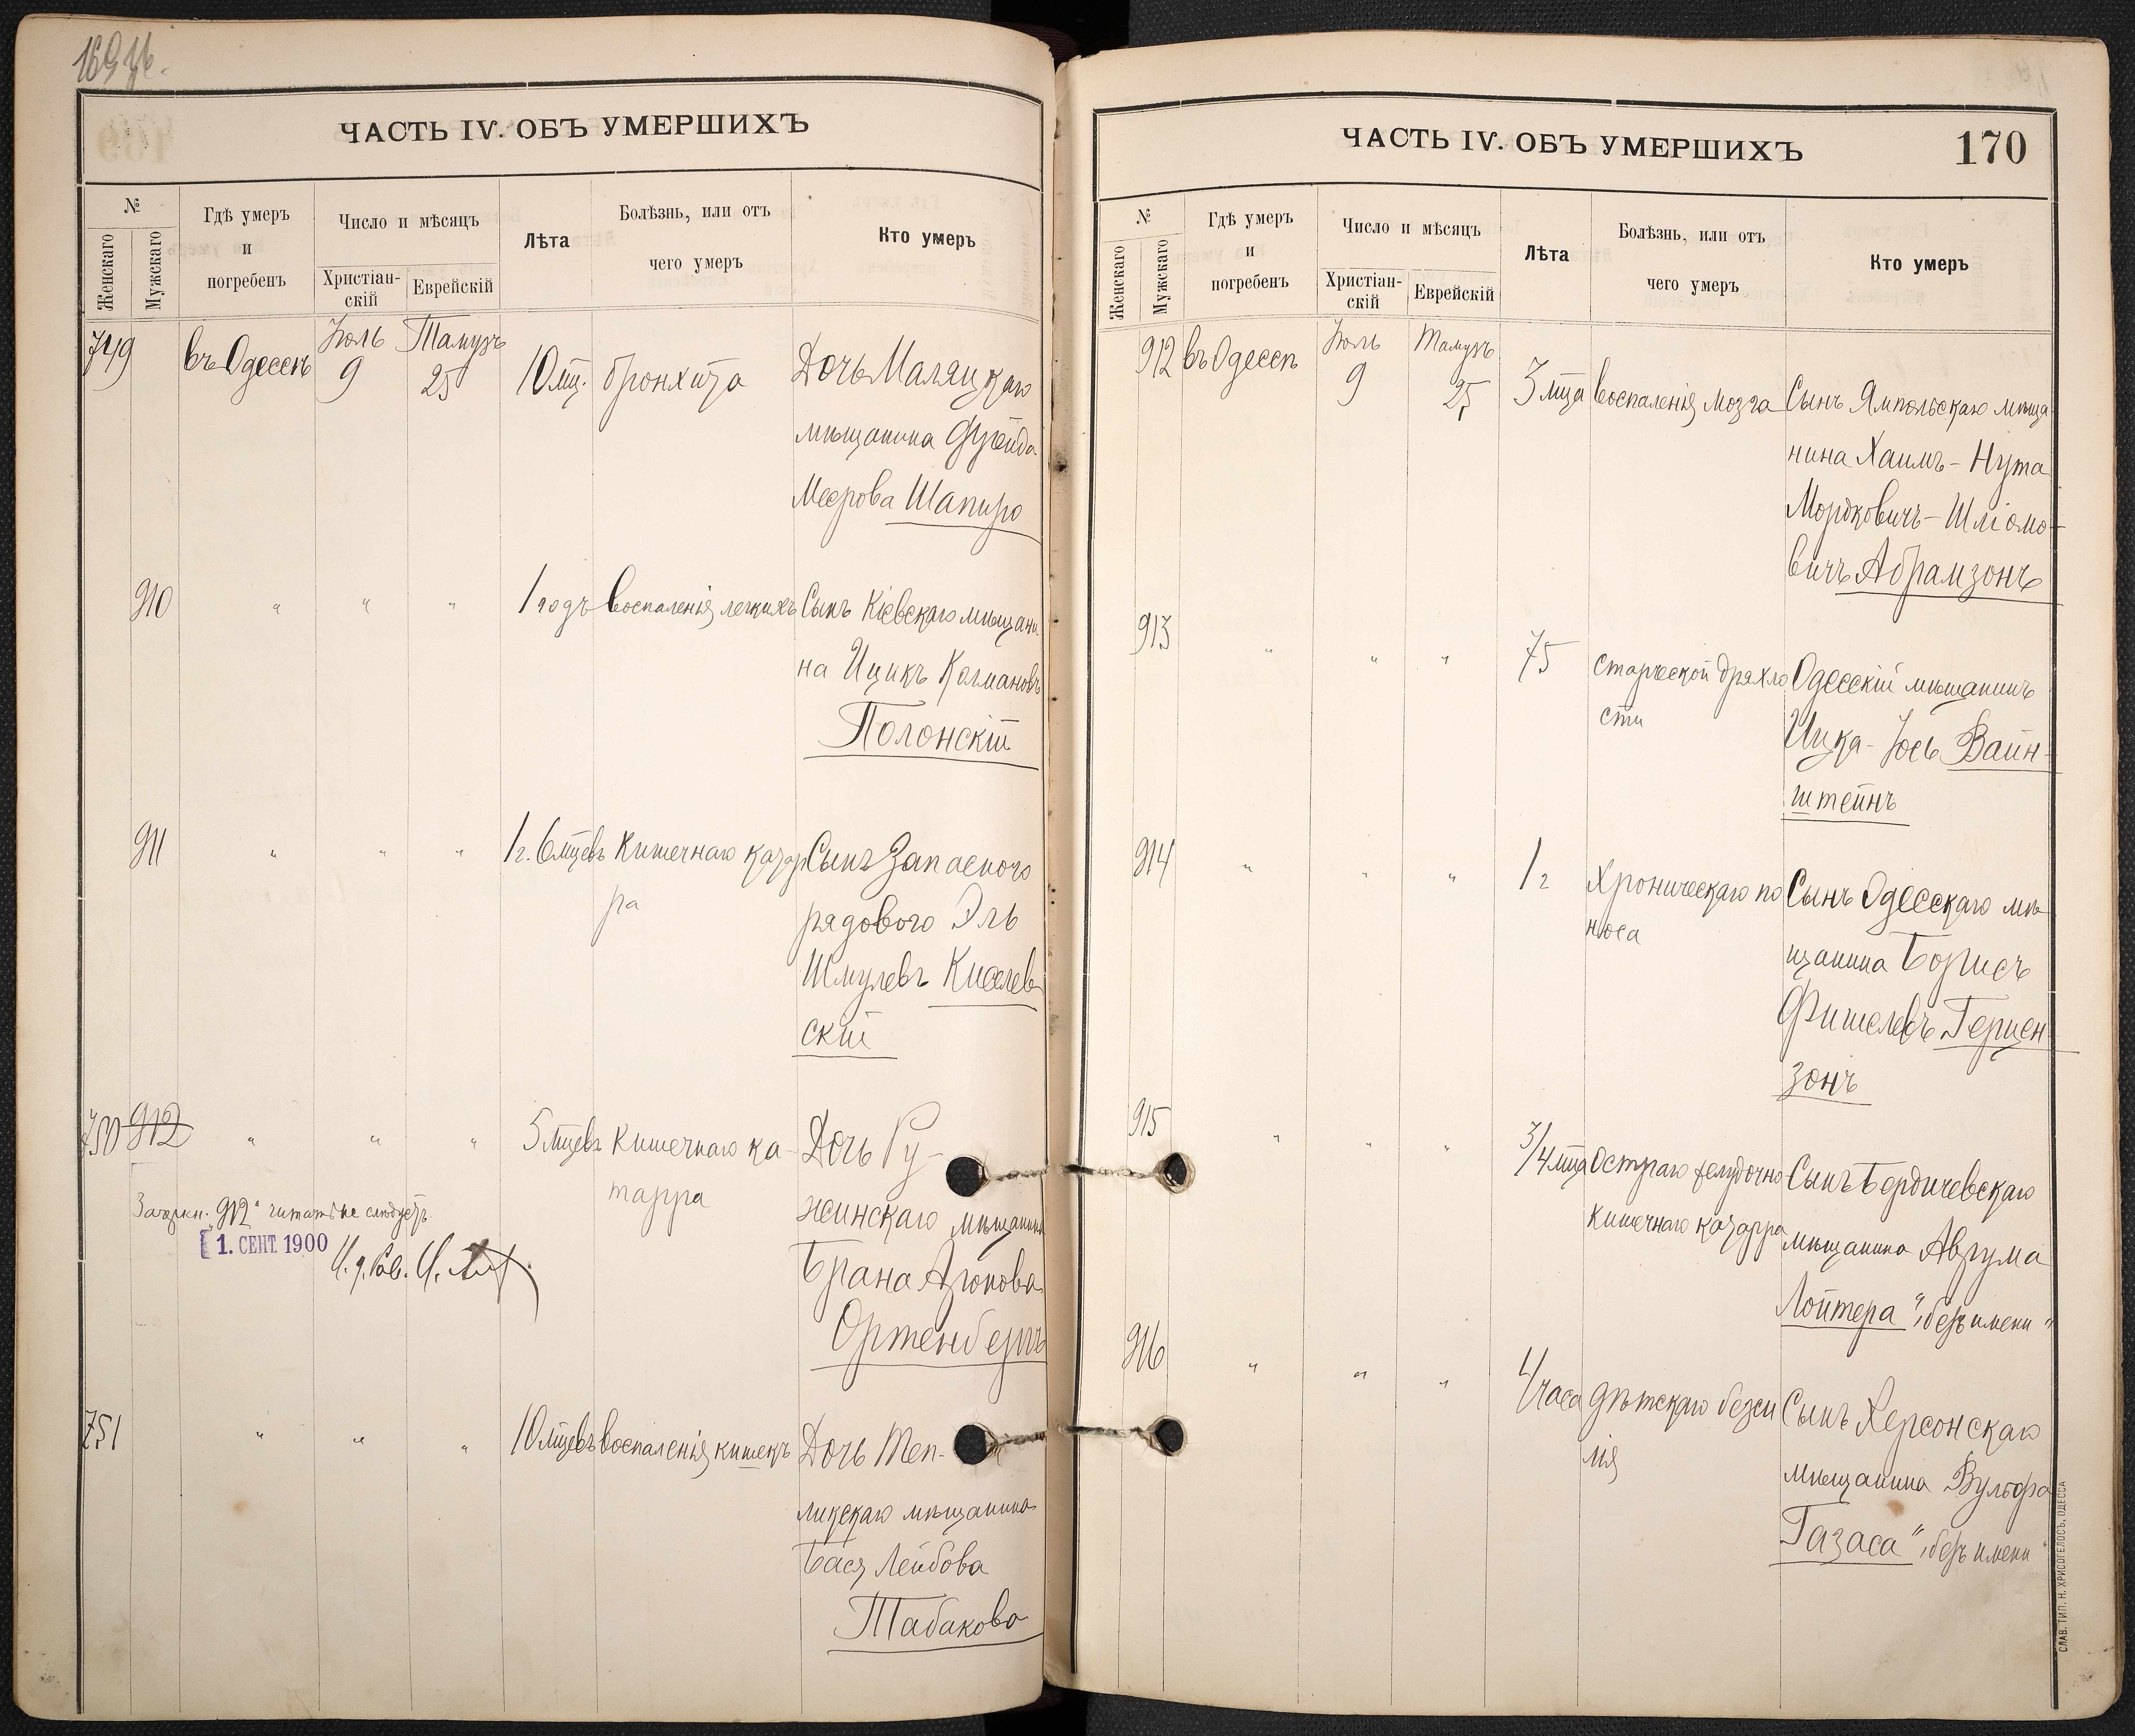 ЧАСТЬ IV. ОБЪ УМЕРШИХЪ
№
Женскаго
Мужскаго
Гдѣ умеръ
и
погребенъ
Число и мѣсяцъ
Христіан-
скій
Еврейскій
Лѣта
Болѣзнь, или отъ
чего умеръ
Кто умеръ
749 въ Одессѣ Іюль 9 Тамузъ 25 10 мц. бронхита Дочь
мѣщанина Фрейда
Меерова Шапиро
910 " " " 1 годъ воспаленія легкихъ Сынъ Кіевскаго мѣщани
на Ицикъ Калмановъ
Полонскій
911 " " " 1 г. 6 мцевъ Кишечнаго катар Сынъ Запасного
ра рядового Эль
Шмулевъ Киселев
скій
750 912 " " " 5 мцевъ Кишечнаго ка- Дочь Ру-
тарра жинскаго мѣщанина
Брана
Ортенбергъ
Зачеркн. "912" читать не слѣдуетъ.
1. СЕНТ. 1900
751 " " " 10 мцевъ воспаленія кишекъ Дочь Теп-
ликскаго мѣщанина
Бася Лейбова
Табакова
ЧАСТЬ IV. ОБЪ УМЕРШИХЪ
170
№
Женскаго
Мужскаго
Гдѣ умеръ
и
погребенъ
Число и мѣсяцъ
Христіан-
скій
Еврейскій
Лѣта
Болѣзнь, или отъ
чего умеръ
Кто умеръ
912 въ Одессѣ Іюль 9 Тамузъ 25 3 мца воспаленія мозга Сынъ Ямпольскаго мѣща
нина Хаимъ-Нута
Мордковичъ-Шліомо-
вичъ Абрамзонъ
913 " " " 75 Старческой дряхло Одесскій мѣщанинъ
сти Ицка-Іось Вайн-
штейнъ
914 " " " 1 г Хроническаго по Сынъ Одесскаго мѣ
носа щанина Борисъ
Фишелевъ Герцен-
зонъ
915 " " " 3/4 мца Остраго желудочно Сынъ Бердичевскаго
Кишечнаго катарра мѣщанина Аврума
Лойтера "безъ имени"
916 " " " 4 часа дѣтскаго безси Сынъ Херсонскаго
лія мѣщанина Вульфа
Газаса "безъ имени"
СЛАВ. ТИП. Н. ХРИСОГЕЛОСЪ, ОДЕССА